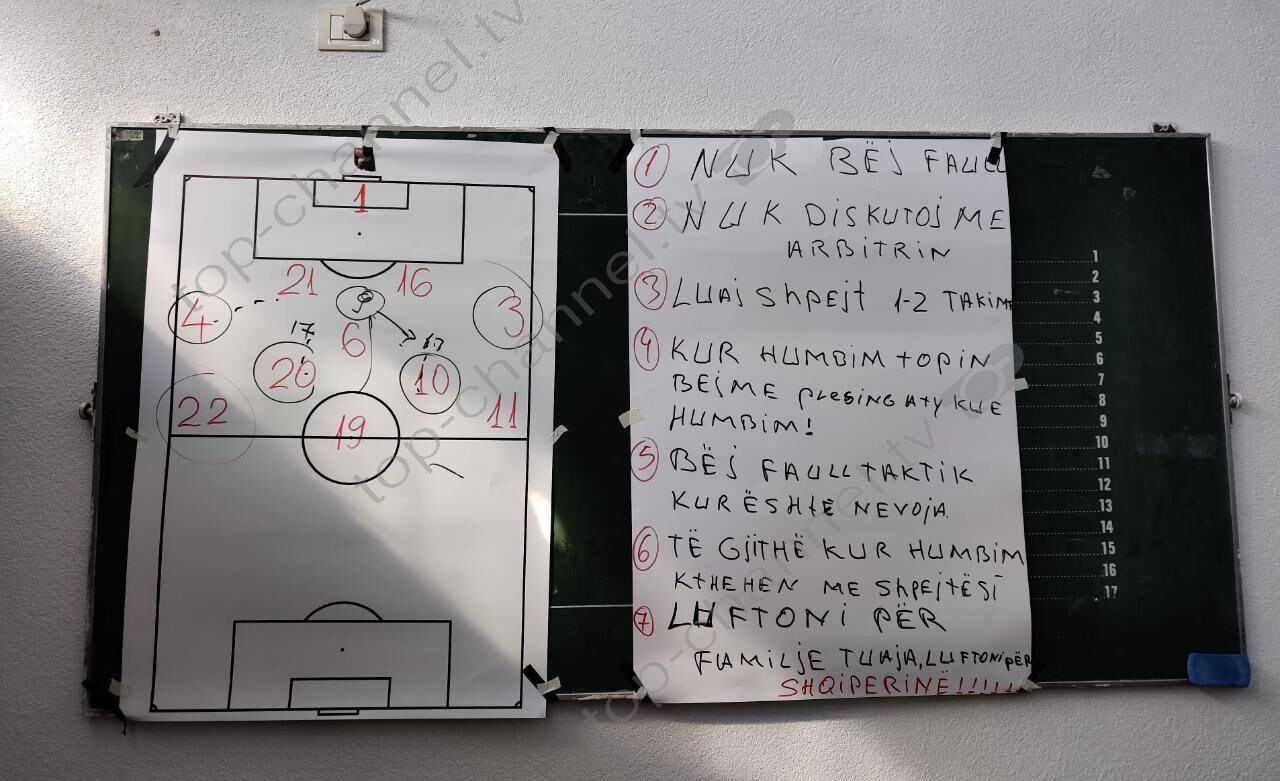 top-channel.tv
top-channel.tv
top-channel.tv
top-channel.tv
1
21 16
4 3
17
6
20 10
22 11
19
1 NUK BËJ FAULL
2 NUK DISKUTOJ ME
ARBITRIN
3 LUAJ SHPEJT 1-2 TAKIME
4 KUR HUMBIM TOPIN
BEJME PRESING ATY KUE
HUMBIM!
5 BËJ FAULL TAKTIK
KUR ËSHTË NEVOJA
6 TË GJITHË KUR HUMBIM
KTHEHEN ME SHPEJTËSI
7 LUFTONI PËR
FAMILJE TUAJA, LUFTONI PËR
SHQIPERINË!!!!!!
1
2
3
4
5
6
7
8
9
10
11
12
13
14
15
16
17